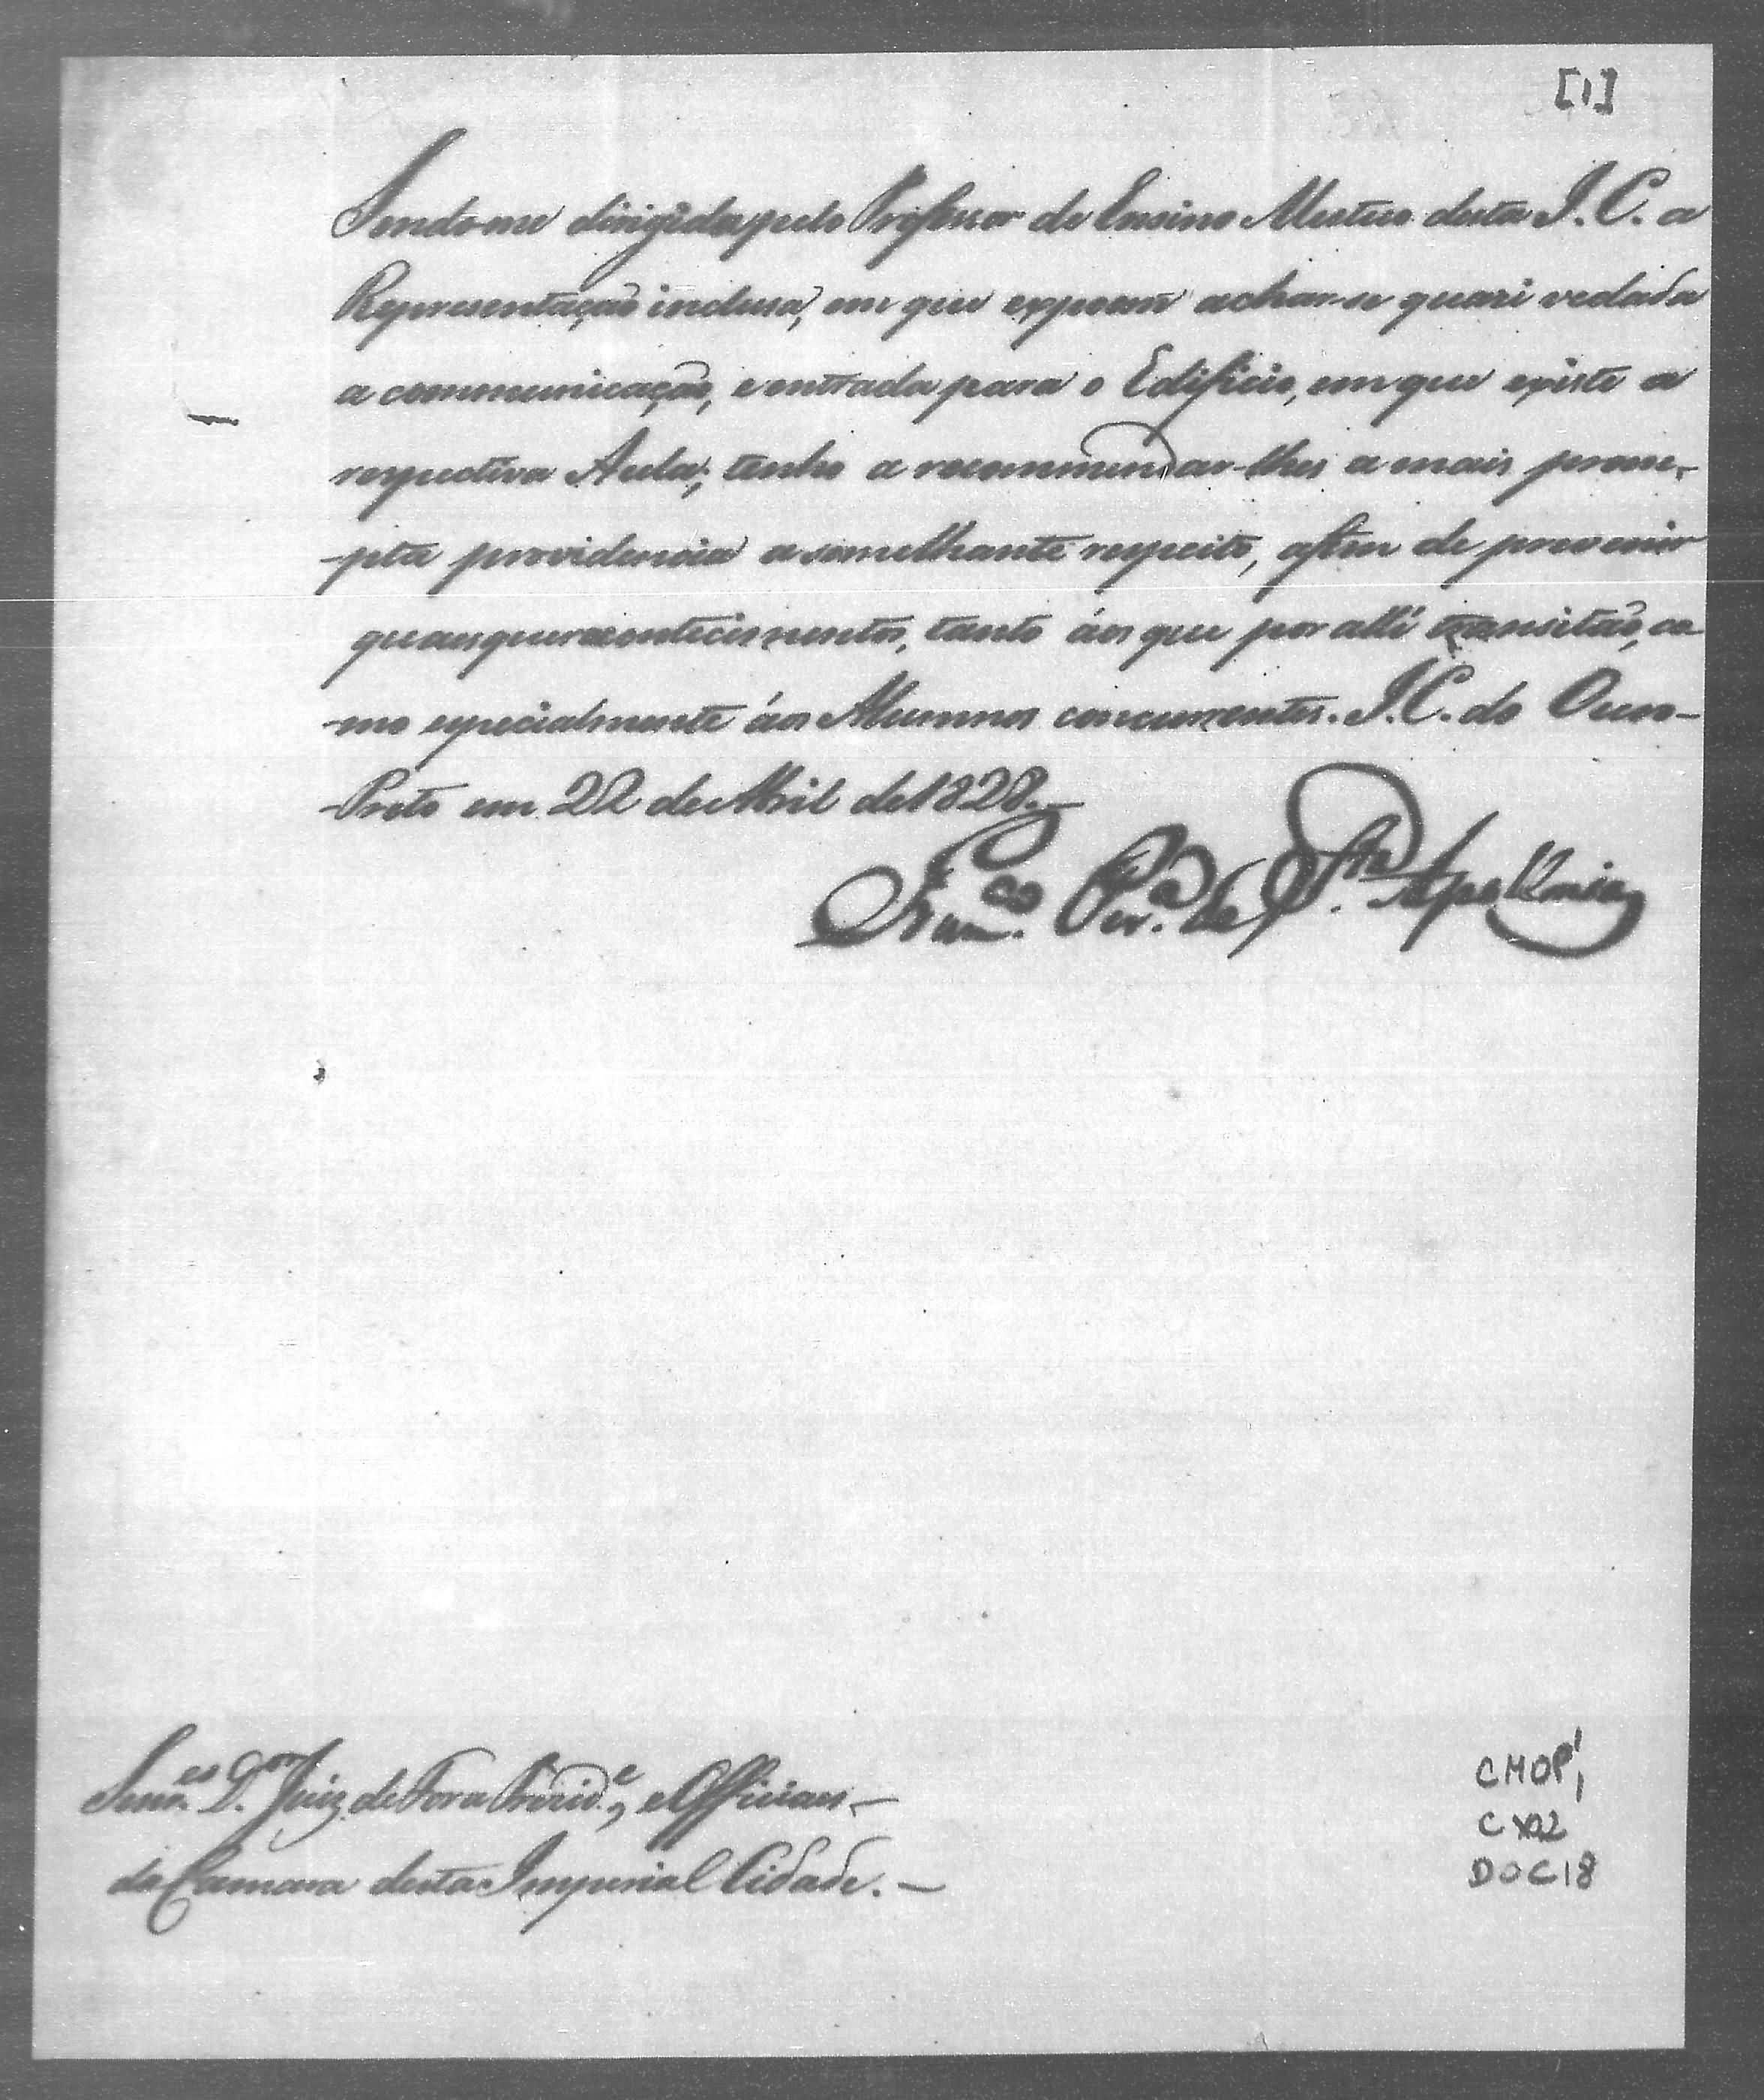 [1]
Sendo-me dirigida pelo Professor de Ensino Mutuo desta I. C. a
Representação inclusa, em que expoem achar-se quasi vedada
a communicação, e entrada para o Edificio, em que existe a
respectiva Aula; tenho a recommendar-lhes a mais prom-
-pta providencia a semelhante respeito, afim de prevenir
quaesquer acontecimentos, tanto áos que por alli transitão, co
-mo especialmente áos Alumnos concurrentes. I. C. do Ouro-
-Preto em 22 de Abril de 1828.
Fran.co Per.a de S.ta Apollonia
Senr.es D.or Juiz de Fora Prezid.e, e Officiaes
da Camara desta Imperial Cidade.
CMOP 1
CX02
DOC18